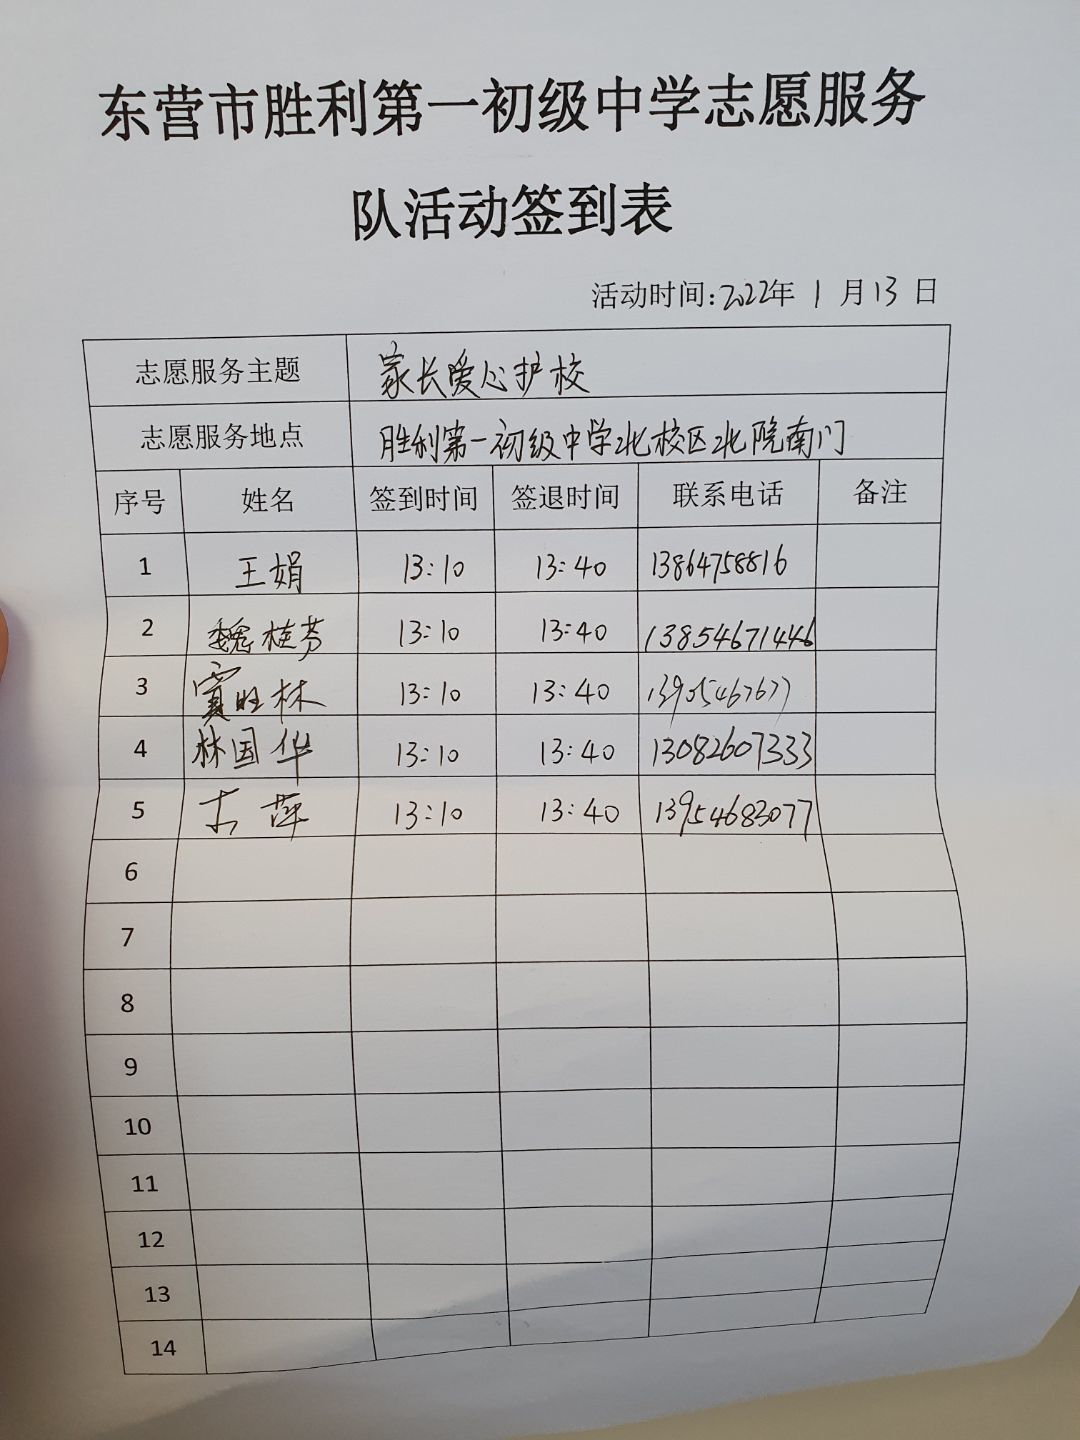 东营市胜利第一初级中学志愿服务
队活动签到表
活动时间:2022年 1 月 13 日
志愿服务主题 家长爱心护校
志愿服务地点 胜利第一初级中学北校区北院南门
序号 姓名 签到时间 签退时间 联系电话 备注
1 王娟 13:10 13:40 13864758816
2 魏桂芬 13:10 13:40 13854671446
3 窦旺林 13:10 13:40 13905467677
4 林国华 13:10 13:40 13082607333
5 萍 13:10 13:40 13954683077
6
7
8
9
10
11
12
13
14